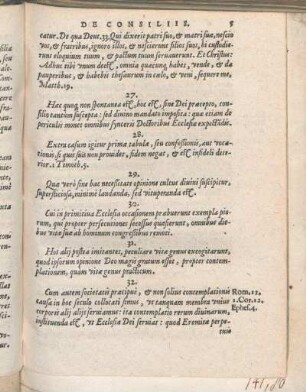 DE CONSILIIS. 5
catur. De qua Deut. 33. Qui dixerit patri suo, & matri suæ, nescio
vos, & fratribus, ignoro illos, & nescierunt filios suos, hi custodie-
runt eloquium tuum, & pactum tuum servaverunt. Et Christus:
Adhuc tibi unum deest, omnia quæcunq; habes, vende, & da
pauperibus, & habebis thesaurum in cœlo, & veni, sequere me,
Matth. 19.
27.
Hæc quoq; non spontanea est, hoc est, sine Dei præcepto, consi-
lii tantum suscepta: sed divino mandato imposita: qua etiam de
periculo monet omnibus synceris Doctoribus Ecclesia
28.
Extra casum igitur primæ tabulæ, seu confessionis, aut vo-
cationis, si quis suis non providet, fidem negat, & est infideli dete-
rior. 1 Timoth. 5.
29.
Quæ verò sine hac necessitate opinione cultus divini suscipitur,
superstitiosa, minimè laudanda, sed vituperanda est.
30.
Cui in primitiva Ecclesia occasionem præbuerunt exempla pio-
rum, qui propter persecutiones secessus quæsierunt, omnibus die-
bus vitæ suæ ab hominum congressibus remoti.
31.
Hos alij postea imitantes, peculiare vitæ genus excogitarunt,
quod ipsorum opinione Deo magis gratum esset, propter contem-
plationem, quàm vitæ genus practicum.
32.
Cum autem societatis præcipuè, & non solius contemplationis
causa in hoc seculo collocati simus, ut tanquam membra unius
corporis alij alijs serviamus: ita contemplatio rerum divinarum,
instituenda est, ut Ecclesiæ Dei serviat: quod Eremitæ perpe-
Rom. 12.
1. Cor. 12.
Ephes. 4.